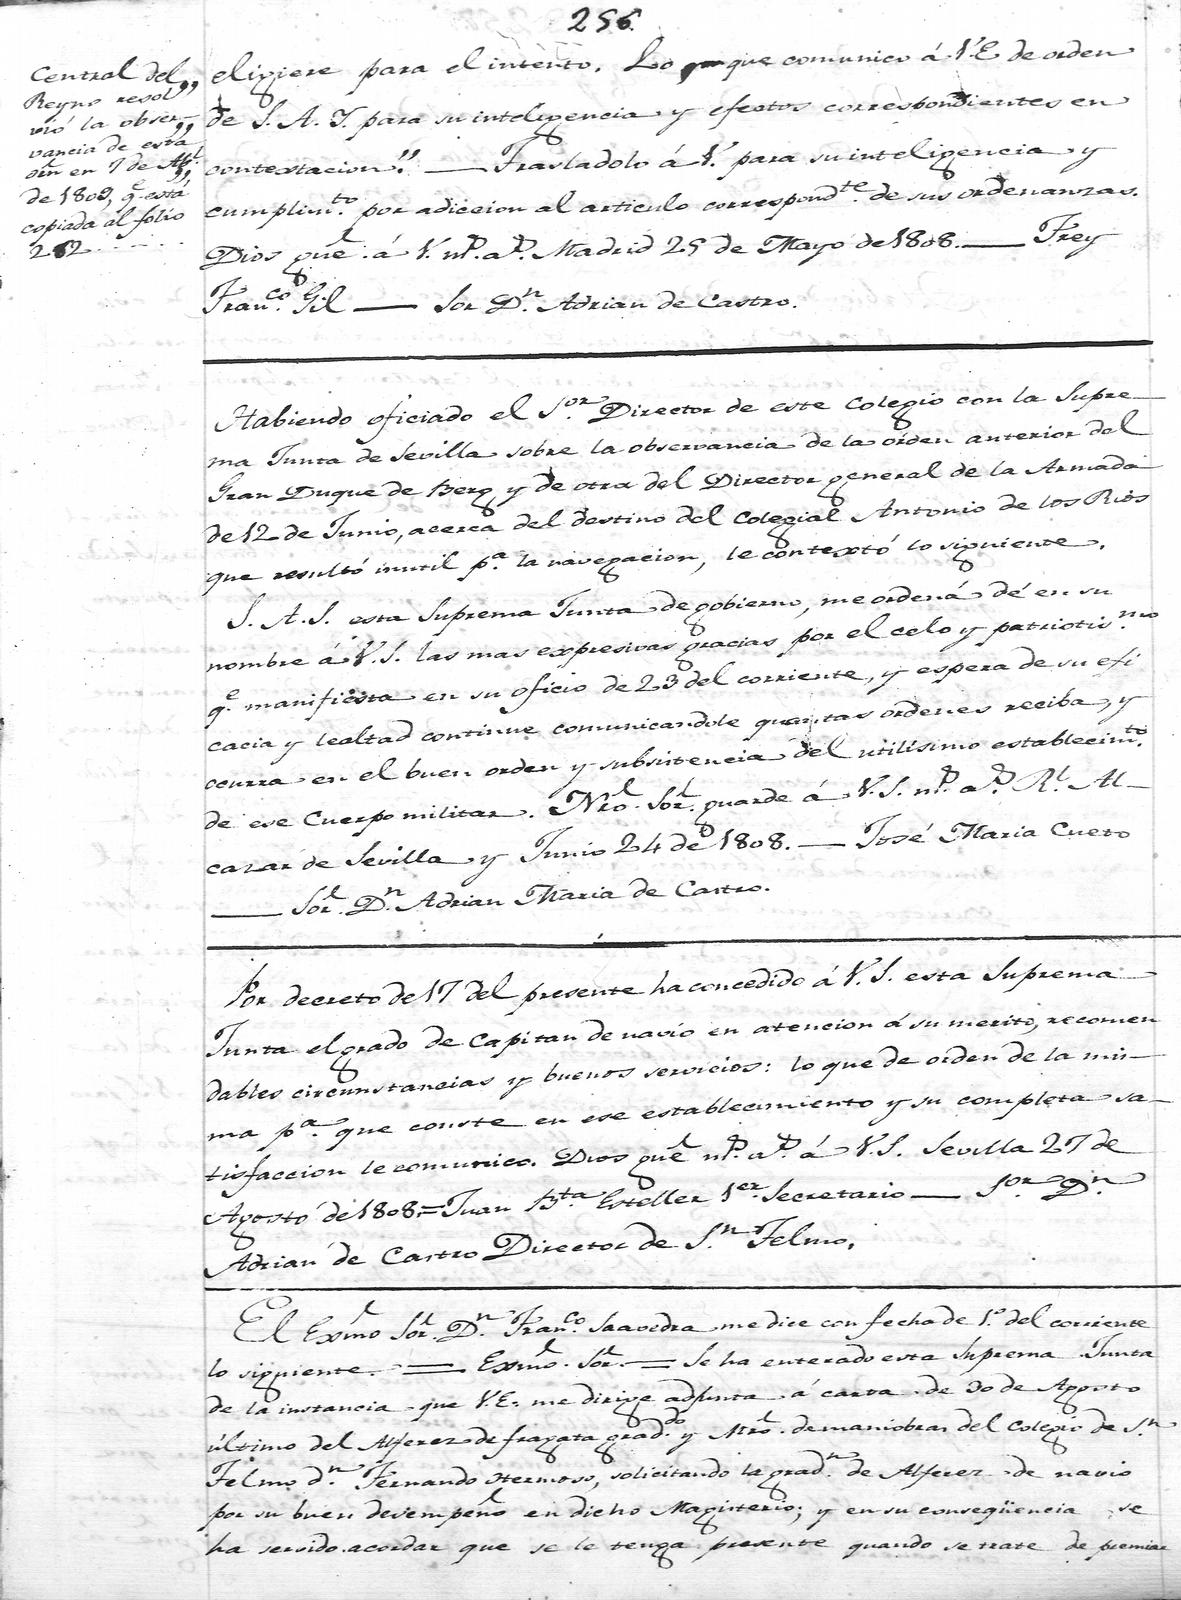 256.
Central del,,
Reyno resol,,
vió la obser-
vancia de esta
orñ en 7 de Abl.
de 1809, q.e está
copiada al folio
262.....
eligiere para el intento. Lo que comunico á V.E. de orden
de S. A. Y. para su inteligencia y efectos correspondientes en
contextacion." — Trasladolo á V. para su inteligencia y
cumplim.to por adiccion al articulo correspond.te de sus ordenanzas.
Dios gue. á V. m.s a.s Madrid 25 de Mayo de 1808. — Frey
Fran.co Gil — Sor D.n Adrian de Castro.
Habiendo oficiado el S.or Director de este Colegio con la Supre-
ma Junta de Sevilla sobre la observancia de la orden anterior del
Gran Duque de Berg y de otra del Director general de la Armada
de 12 de Junio, acerca del destino del Colegial Antonio de los Rios
que resultó inutil p.a la navegacion, le contextó lo siguiente.
S. A. S. esta Suprema Junta de gobierno, me ordena dé en su
nombre á V. S. las mas expresivas gracias por el celo y patriotis.mo
q.e manifiesta en su oficio de 23 del corriente, y espera de su efi
cacia y lealtad continue comunicandole quantas ordenes reciba, y
ocurra en el buen orden y subsistencia del utilisimo establecim.to
de ese Cuerpo militar. Nro. Sor. guarde á V. S. m.s a.s Rl. Al-
cazar de Sevilla y Junio 24 de 1808. — José Maria Cueto
— Sor. D.n Adrian Maria de Castro.
Por decreto de 17 del presente ha concedido á V. S. esta Suprema
Junta el grado de Capitan de navio en atencion á su merito, recomen
dables circunstancias y buenos servicios: lo que de orden de la mis-
ma p.a que conste en ese establecimiento y su completa sa-
tisfaccion le comunico. Dios gue m.s a.s á V. S. Sevilla 27 de
Agosto de 1808. = Juan B.ta Esteller 1.er Secretario — S.or D.n
Adrian de Castro Director de S.n Telmo.
El Exmo Sor. D.n Fran.co Saavedra me dice con fecha de 1.o del corriente
lo siguiente. = Exmo. Sor. = Se ha enterado esta Suprema Junta
de la instancia que V.E. me dirige adjunta á carta de 30 de Agosto
último del Alferez de fragata grad.do y Mro. de maniobras del Colegio de S.n
Telmo d.n Fernando Hermoso, solicitando la grad.n de Alferez de navio
por su buen desempeño en dicho Magisterio; y en su conseqüencia se
ha servido acordar que se le tenga presente quando se trate de premiar